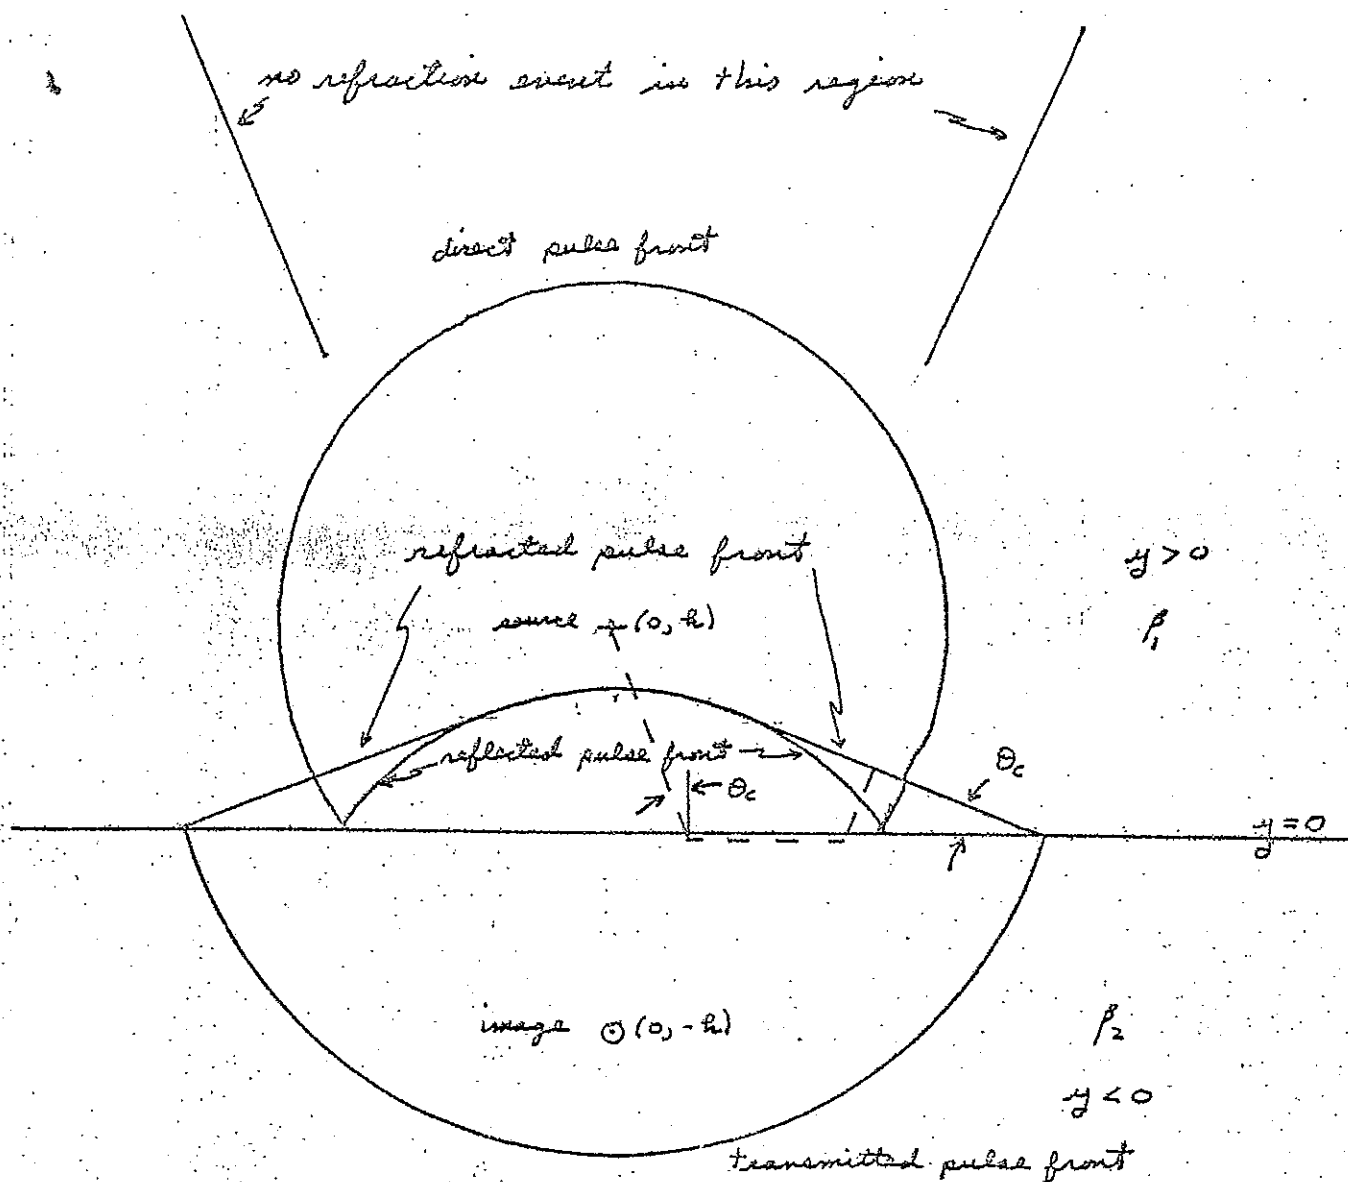 no refraction event in this region
direct pulse front
refracted pulse front
y > 0
source (0, h)
β₁
reflected pulse front
θc
θc
y = 0
image (0, -h)
β₂
y < 0
transmitted pulse front